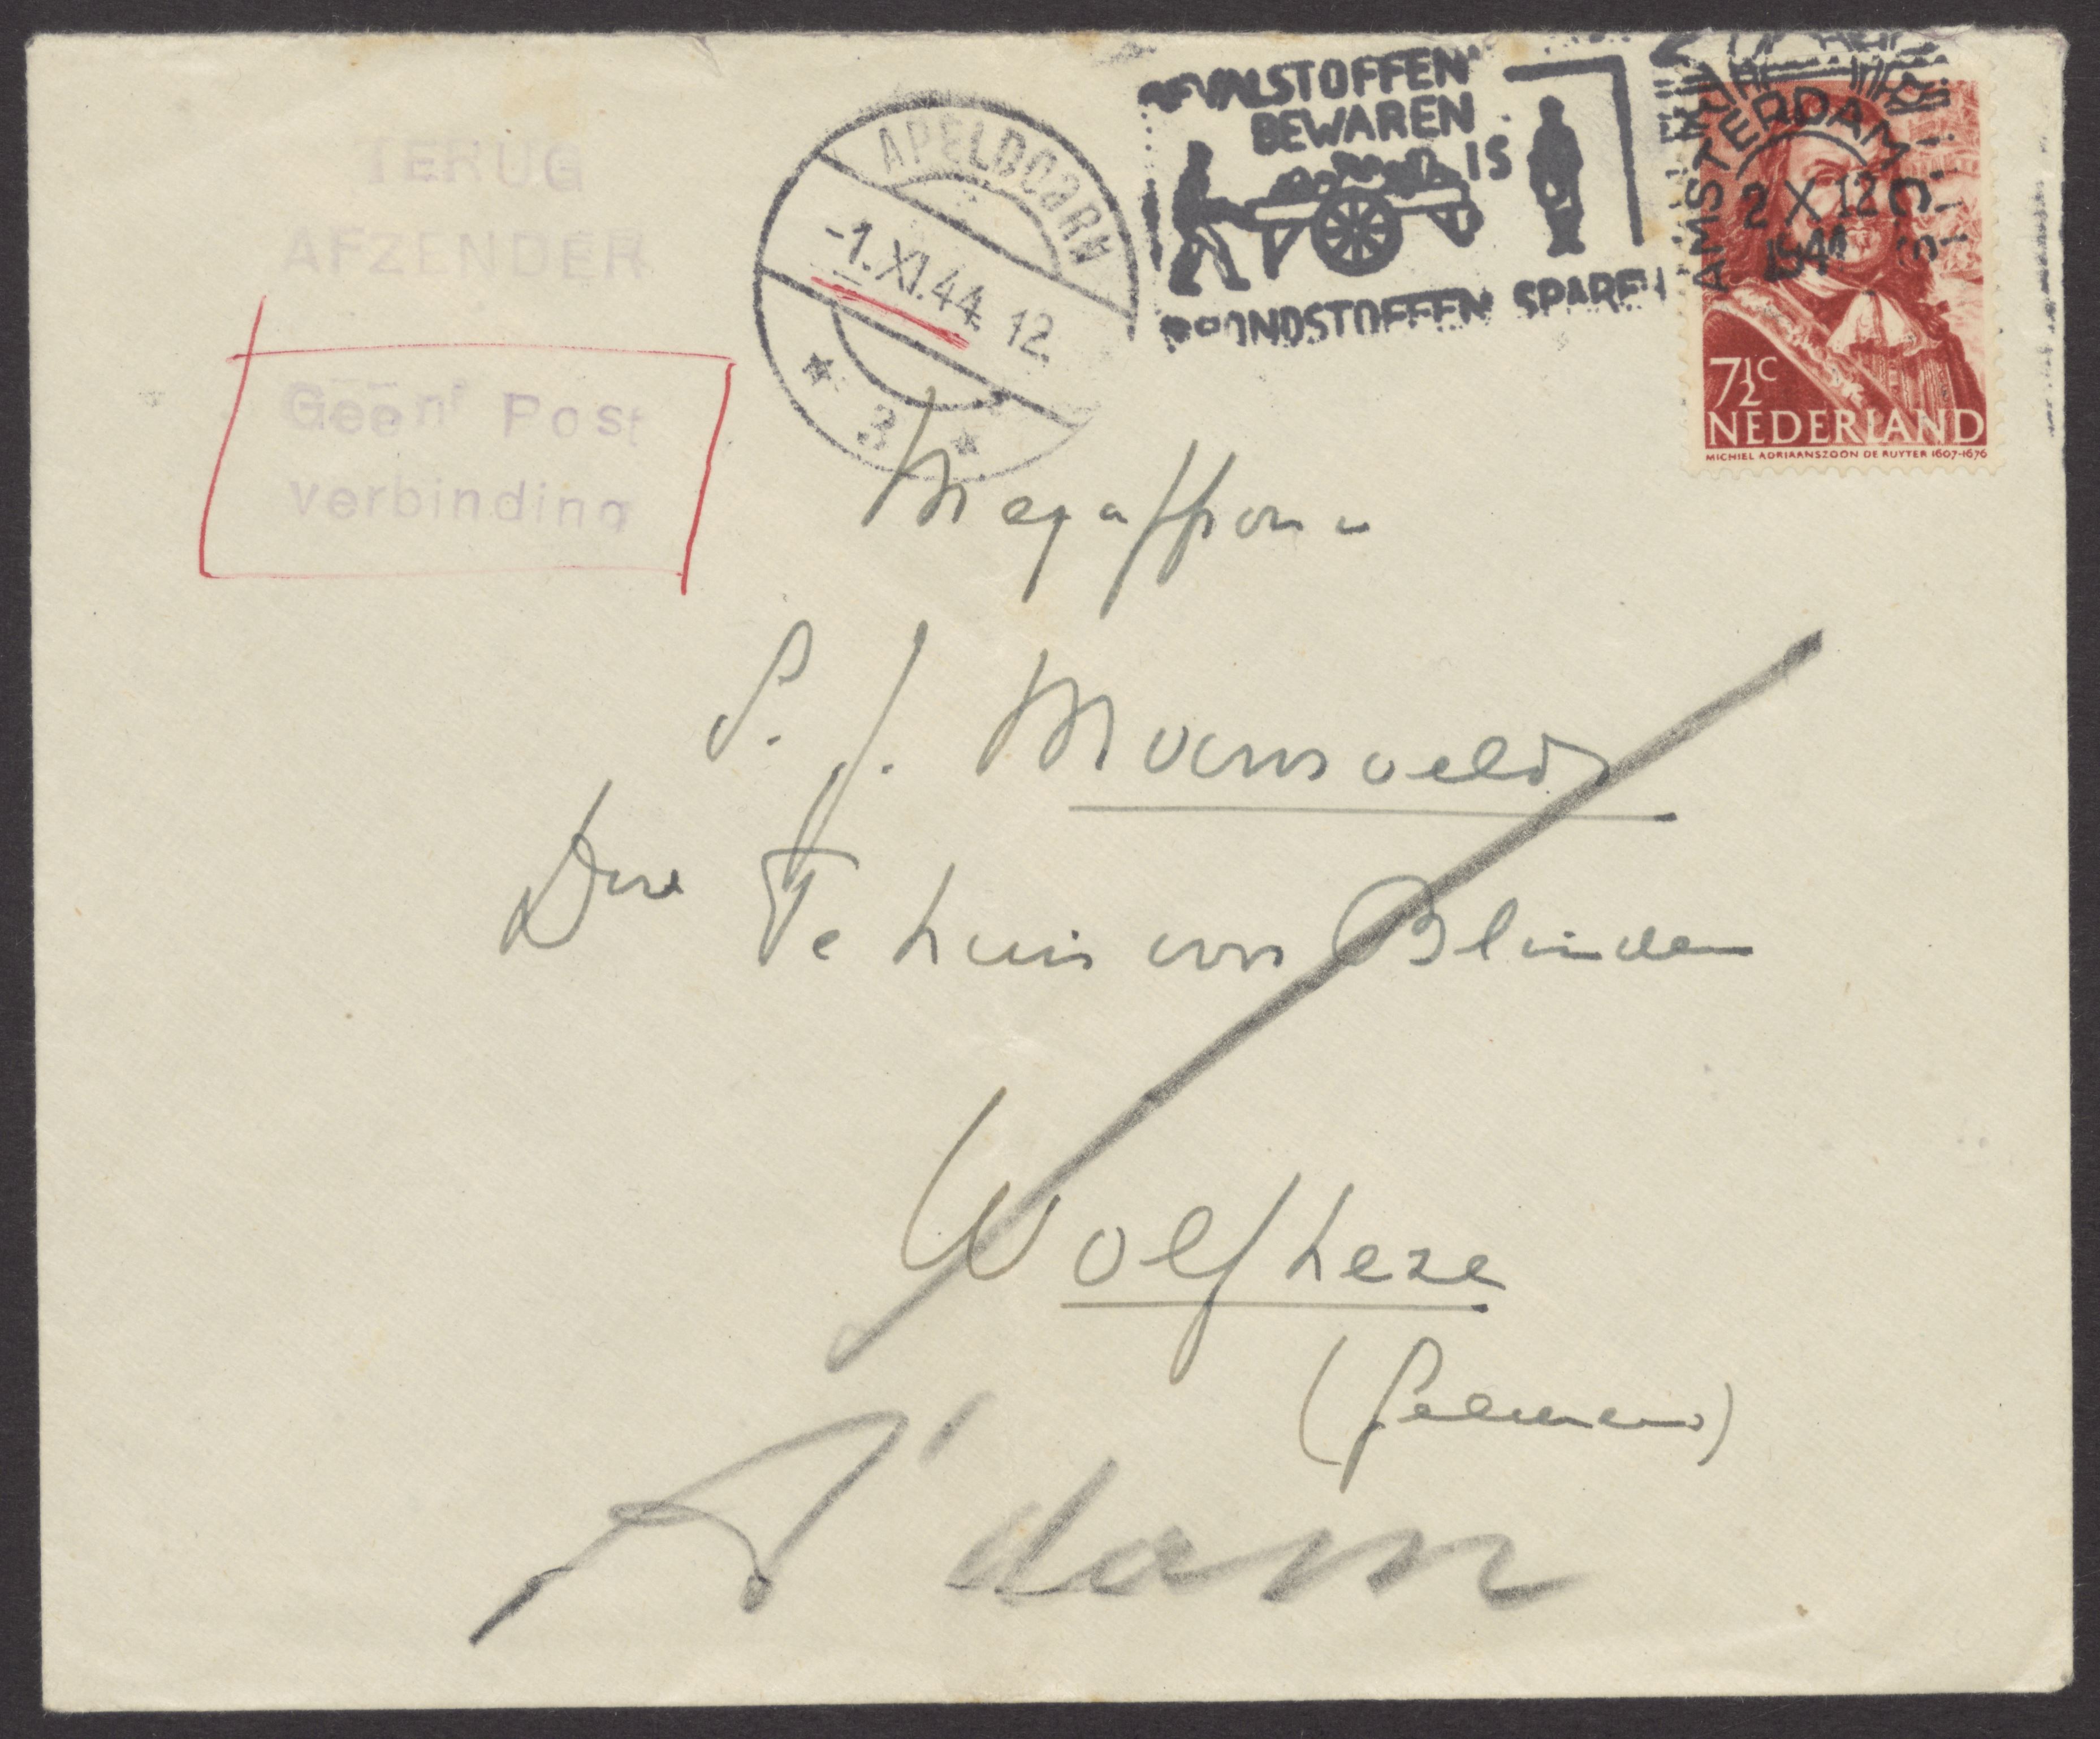 TERUG
AFZENDER
Geen Post
verbinding
APELDOORN
-1.XI.44. 12.
3
AFVALSTOFFEN
BEWAREN
IS
GRONDSTOFFEN SPAREN
AMSTERDAM
2 X 12
1944
7½c
NEDERLAND
MICHIEL ADRIAANSZOON DE RUYTER 1607-1676
S. J.
Tehuis voor Blinden
Wolfheze
A'dam